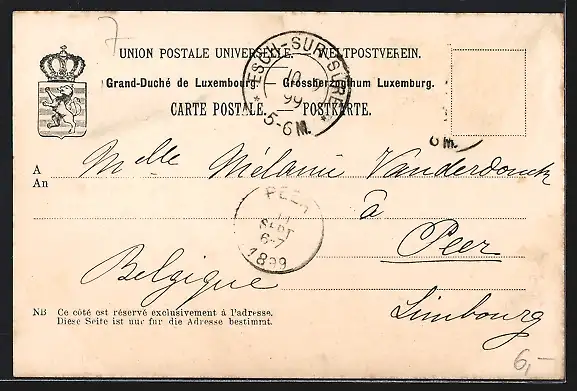 7
UNION POSTALE UNIVERSELLE. — WELTPOSTVEREIN.
Grand-Duché de Luxembourg. — Grossherzogthum Luxemburg.
CARTE POSTALE. — POSTKARTE.
* ESCH-SUR-SÛRE *
10
99
5-6 M.
6 M.
A Mlle Mélanie Vanderdonck
An
à
PEER
11
SEPT
6-7
1899
Peer
Belgique
Limbourg
NB Ce côté est réservé exclusivement à l'adresse.
Diese Seite ist nur für die Adresse bestimmt.
6,-